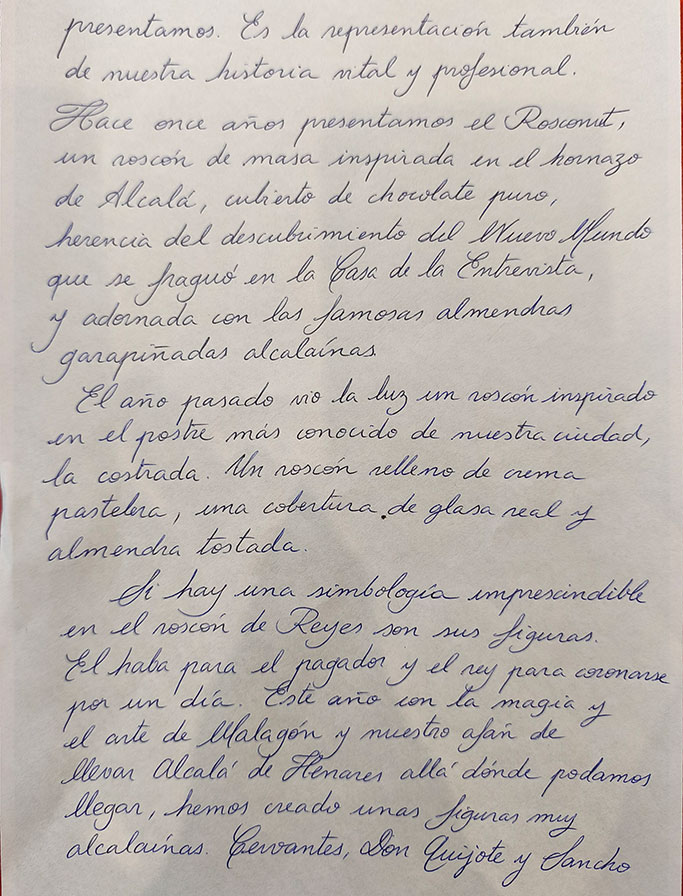 presentamos. Es la representación también
de nuestra historia vital y profesional.
Hace once años presentamos el Rosconut,
un roscón de masa inspirada en el hornazo
de Alcalá, cubierto de chocolate puro,
herencia del descubrimiento del Nuevo Mundo
que se fraguó en la Casa de la Entrevista,
y adornada con las famosas almendras
garapiñadas alcalaínas
El año pasado vio la luz un roscón inspirado
en el postre más conocido de nuestra ciudad,
la costrada. Un roscón relleno de crema
pastelera, una cobertura de glasa real y
almendra tostada.
Si hay una simbología imprescindible
en el roscón de Reyes son sus figuras.
El haba para el pagador y el rey para coronarse
por un día. Este año con la magia y
el arte de Malagón y nuestro afán de
llevar Alcalá de Henares allá dónde podamos
llegar, hemos creado unas figuras muy
alcalaínas. Cervantes, Don Quijote y Sancho